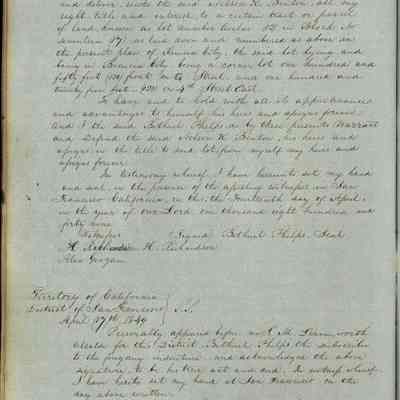 and deliver, unto the said Nelson H. Benton, all my
right title and interest, to a certain tract or parcel
of land known as Lot number twelve 12 in Block No
seventeen 17, as laid down and numbered as above in
the present plan of Benicia City, the said lot lying and
being in Benicia City being a corner lot one hundred and
fifty feet (150) front on G Street, and one hundred and
twenty five feet 125 on 4th Street East.
To have and to hold with all its appurtenances
and advantages to himself his heirs and assigns forever
And I the said Bethuel Phelps do by these presents Warrant
and Defend the said Nelson H. Benton, his heirs and
assigns in the title to said lot, from myself my heirs and
assigns forever
In testimony whereof I have hereunto set my hand
and seal, in the presence of the assisting witnesses in San
Francisco California, on this the fourteenth day of April,
in the year of our Lord one thousand eight hundred and
forty nine
Witnesses Signed Bethuel Phelps, Seal
H. Richardson
Alex
Territory of California
District of San Francisco S.S.
April 17th 1849
Personally appeared before me
alcalde for this District, Bethuel Phelps the subscriber
to the foregoing indenture and acknowledged the above
signature to be his free act and deed. In witness whereof
I have hereto set my hand at San Francisco on the
day above written